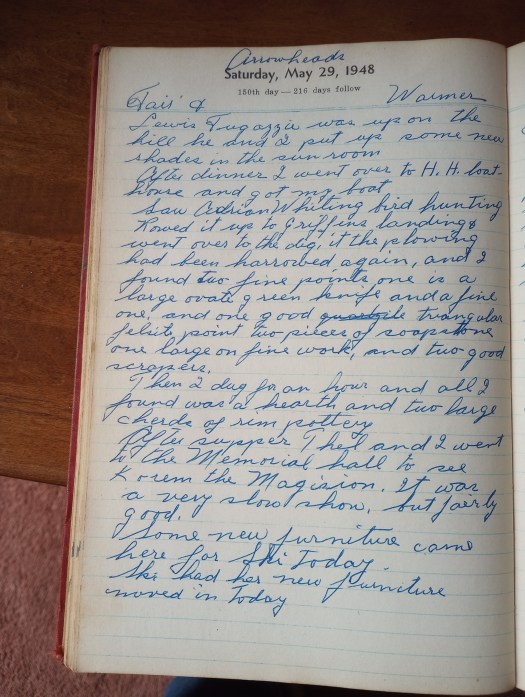 Arrowheads
Saturday, May 29, 1948
150th day — 216 days follow
Fair & Warmer
Lewis Fugazzie was up on the
hill he and I put up some new
shades in the sun room
After dinner I went over to H. H. boat-
house and got my boat
Saw Adrian Whiting bird hunting
Rowed it up to Griffins landing &
went over to the dig, it the plowing
had been harrowed again, and I
found two fine points one is a
large ovate green knife and a fine
one, and one good quartzite triangular
felsite point two pieces of soapstone
one large on fine work, and two good
scrapers.
Then I dug for an hour and all I
found was a hearth and two large
cherds of rim pottery
After supper Thel and I went
to the Memorial hall to see
Korem the Magision. It was
a very slow show, but fairly
good.
Some new furniture came
here for Ski Today.
Ski had her new furniture
moved in Today